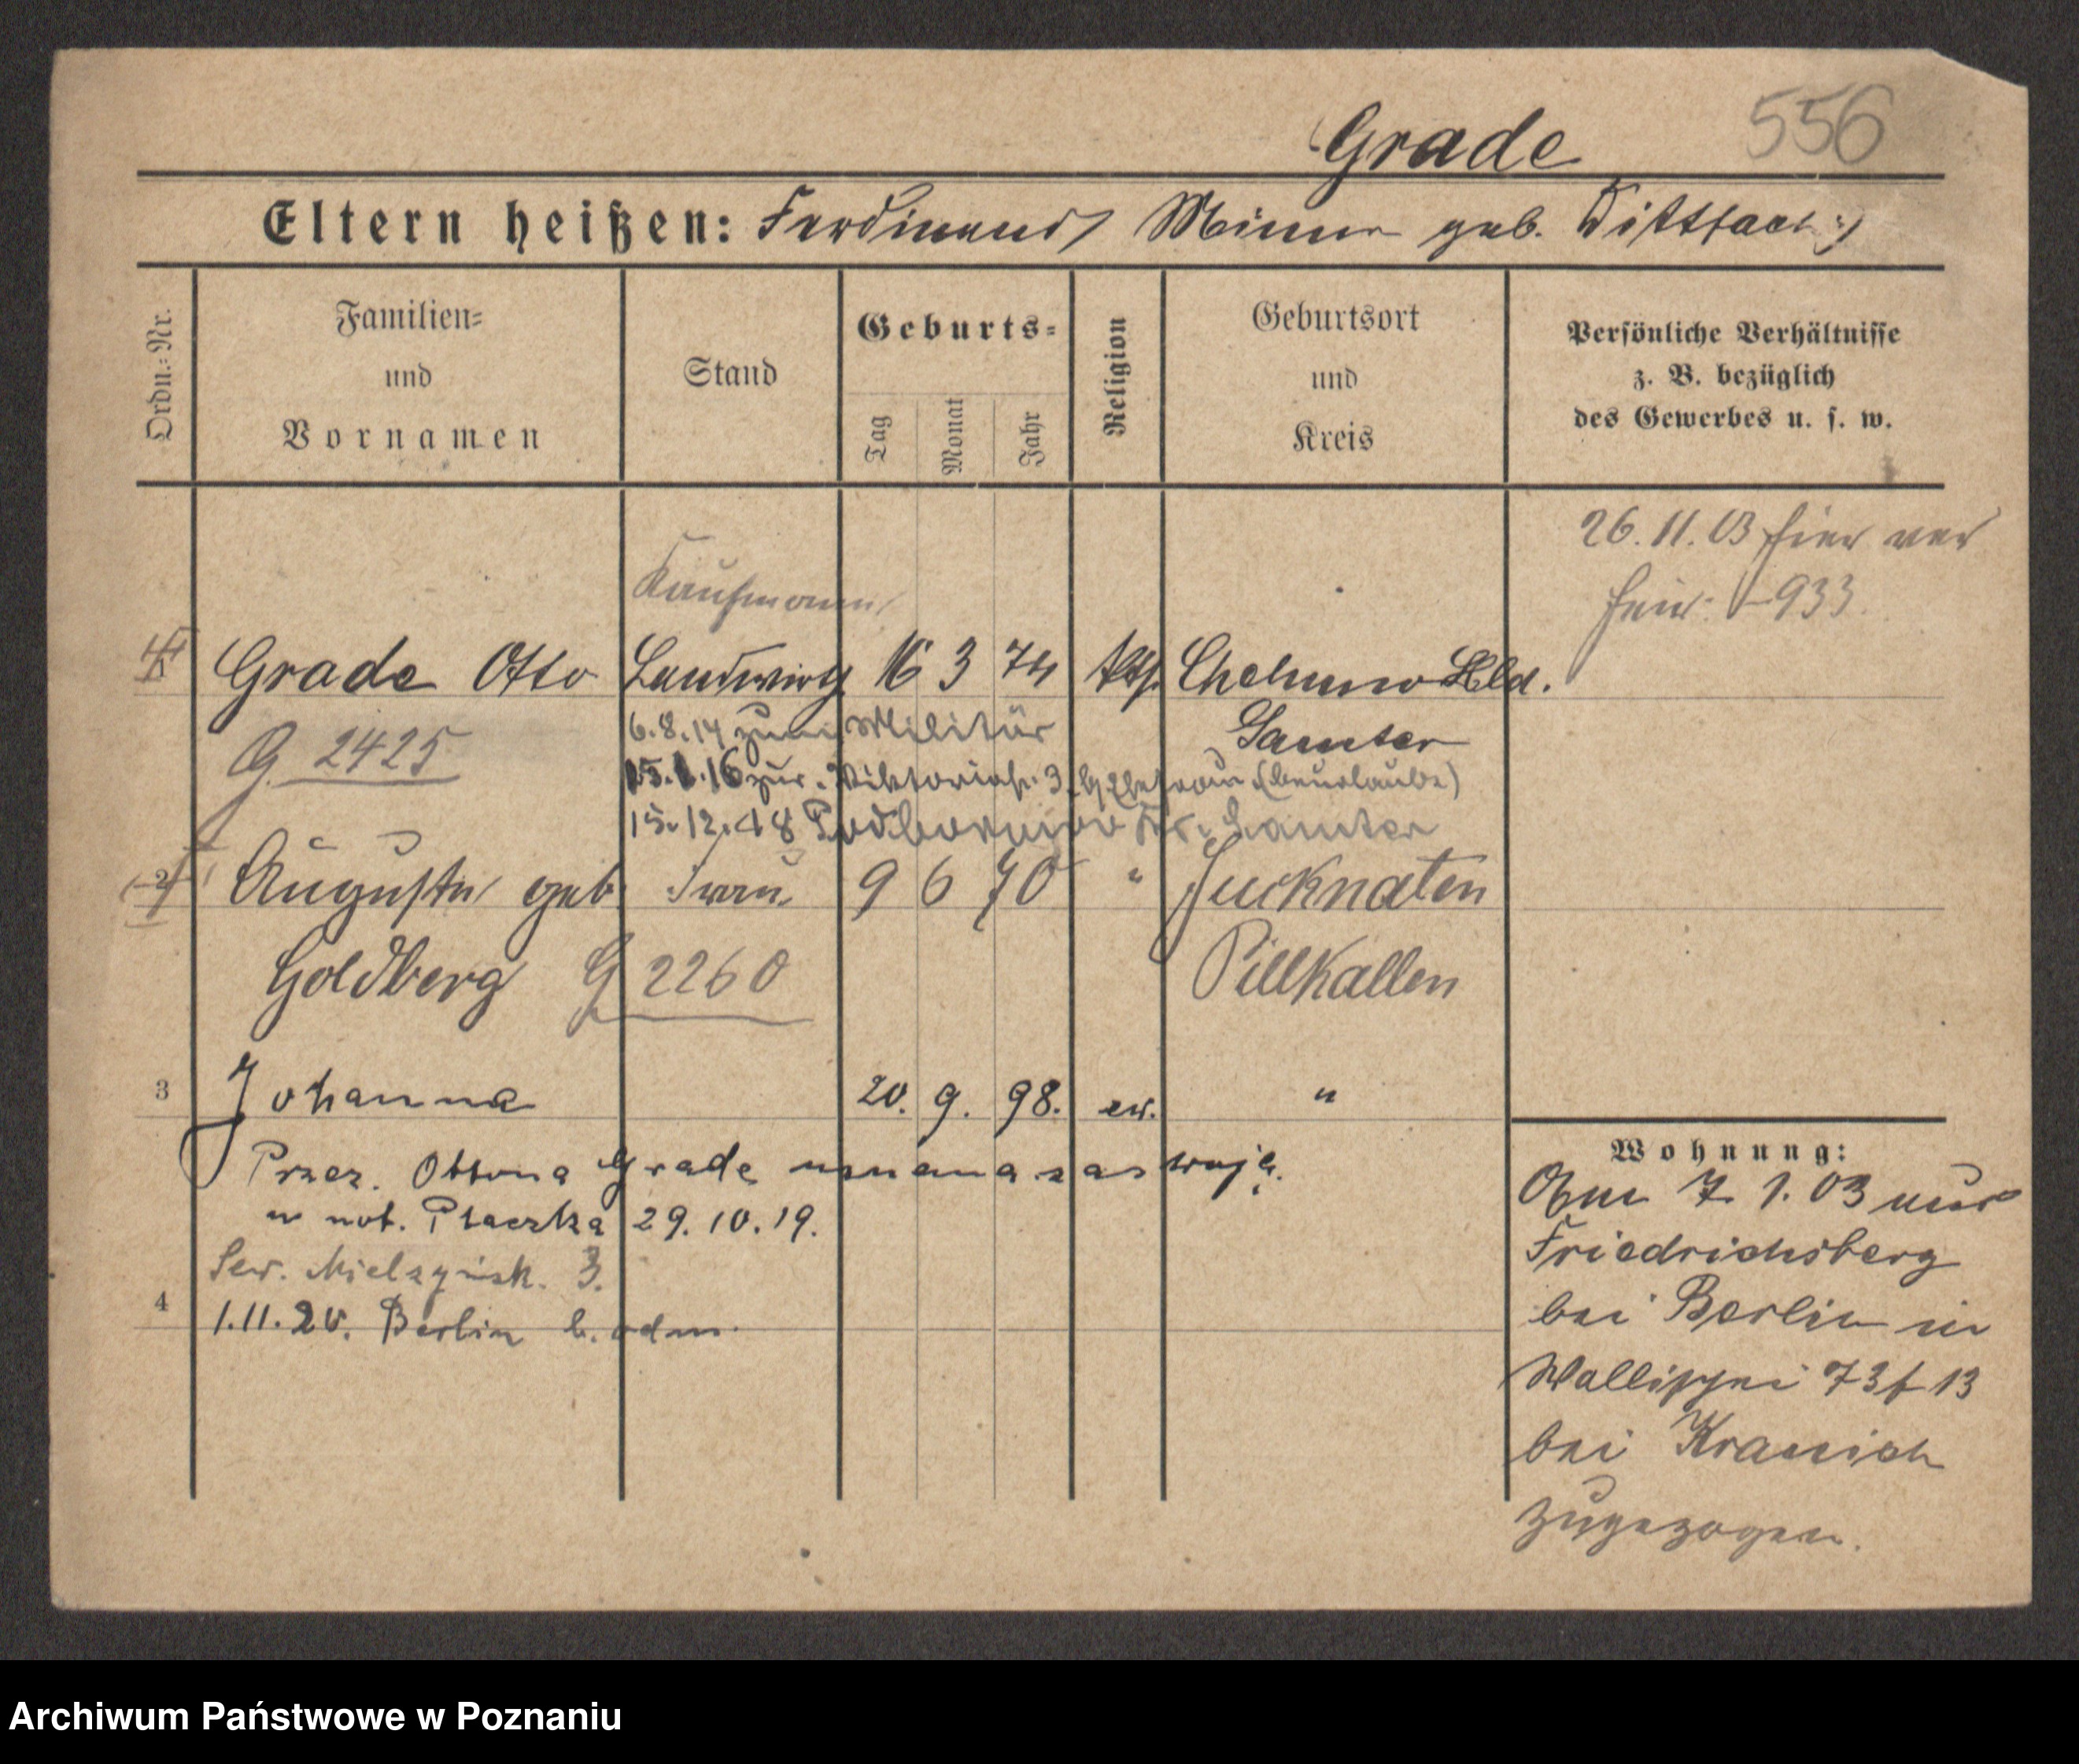 556
Grade
Eltern heißen: Ferdinand, Minna geb. Dittfach
Ordn.-Nr.
Familien-
und
Vornamen
Stand
Geburts-
Tag
Monat
Jahr
Religion
Geburtsort
und
Kreis
Persönliche Verhältnisse
z. B. bezüglich
des Gewerbes u. s. w.
26. 11. 03 hier ver
heir. 933
Kaufmann
1 Grade Otto Landwirt 16 3 74 Chelmno Hld.
G 2425
6.8.14 zum Militär Samter
16 zur. Viktoriastr. 3 b. Ehefrau (beurlaubt)
15.12.18 Podborowo Kr. Samter
2 Auguste geb Frau 9 6 70 " Jucknaten
Goldberg G 2260 Pillkallen
3 Johanna 20. 9. 98. ev. "
Przez. Ottona Grade uznana za swoją.
w not. Płaczka 29.10.19.
Sew. Mielzyńsk. 3.
4
1.11.20. Berlin b. odm.
Wohnung:
Am 7. 1. 03 aus
Friedrichsberg
bei Berlin in
Wallischei 73 f 13
bei Kranich
zugezogen.
Archiwum Państwowe w Poznaniu